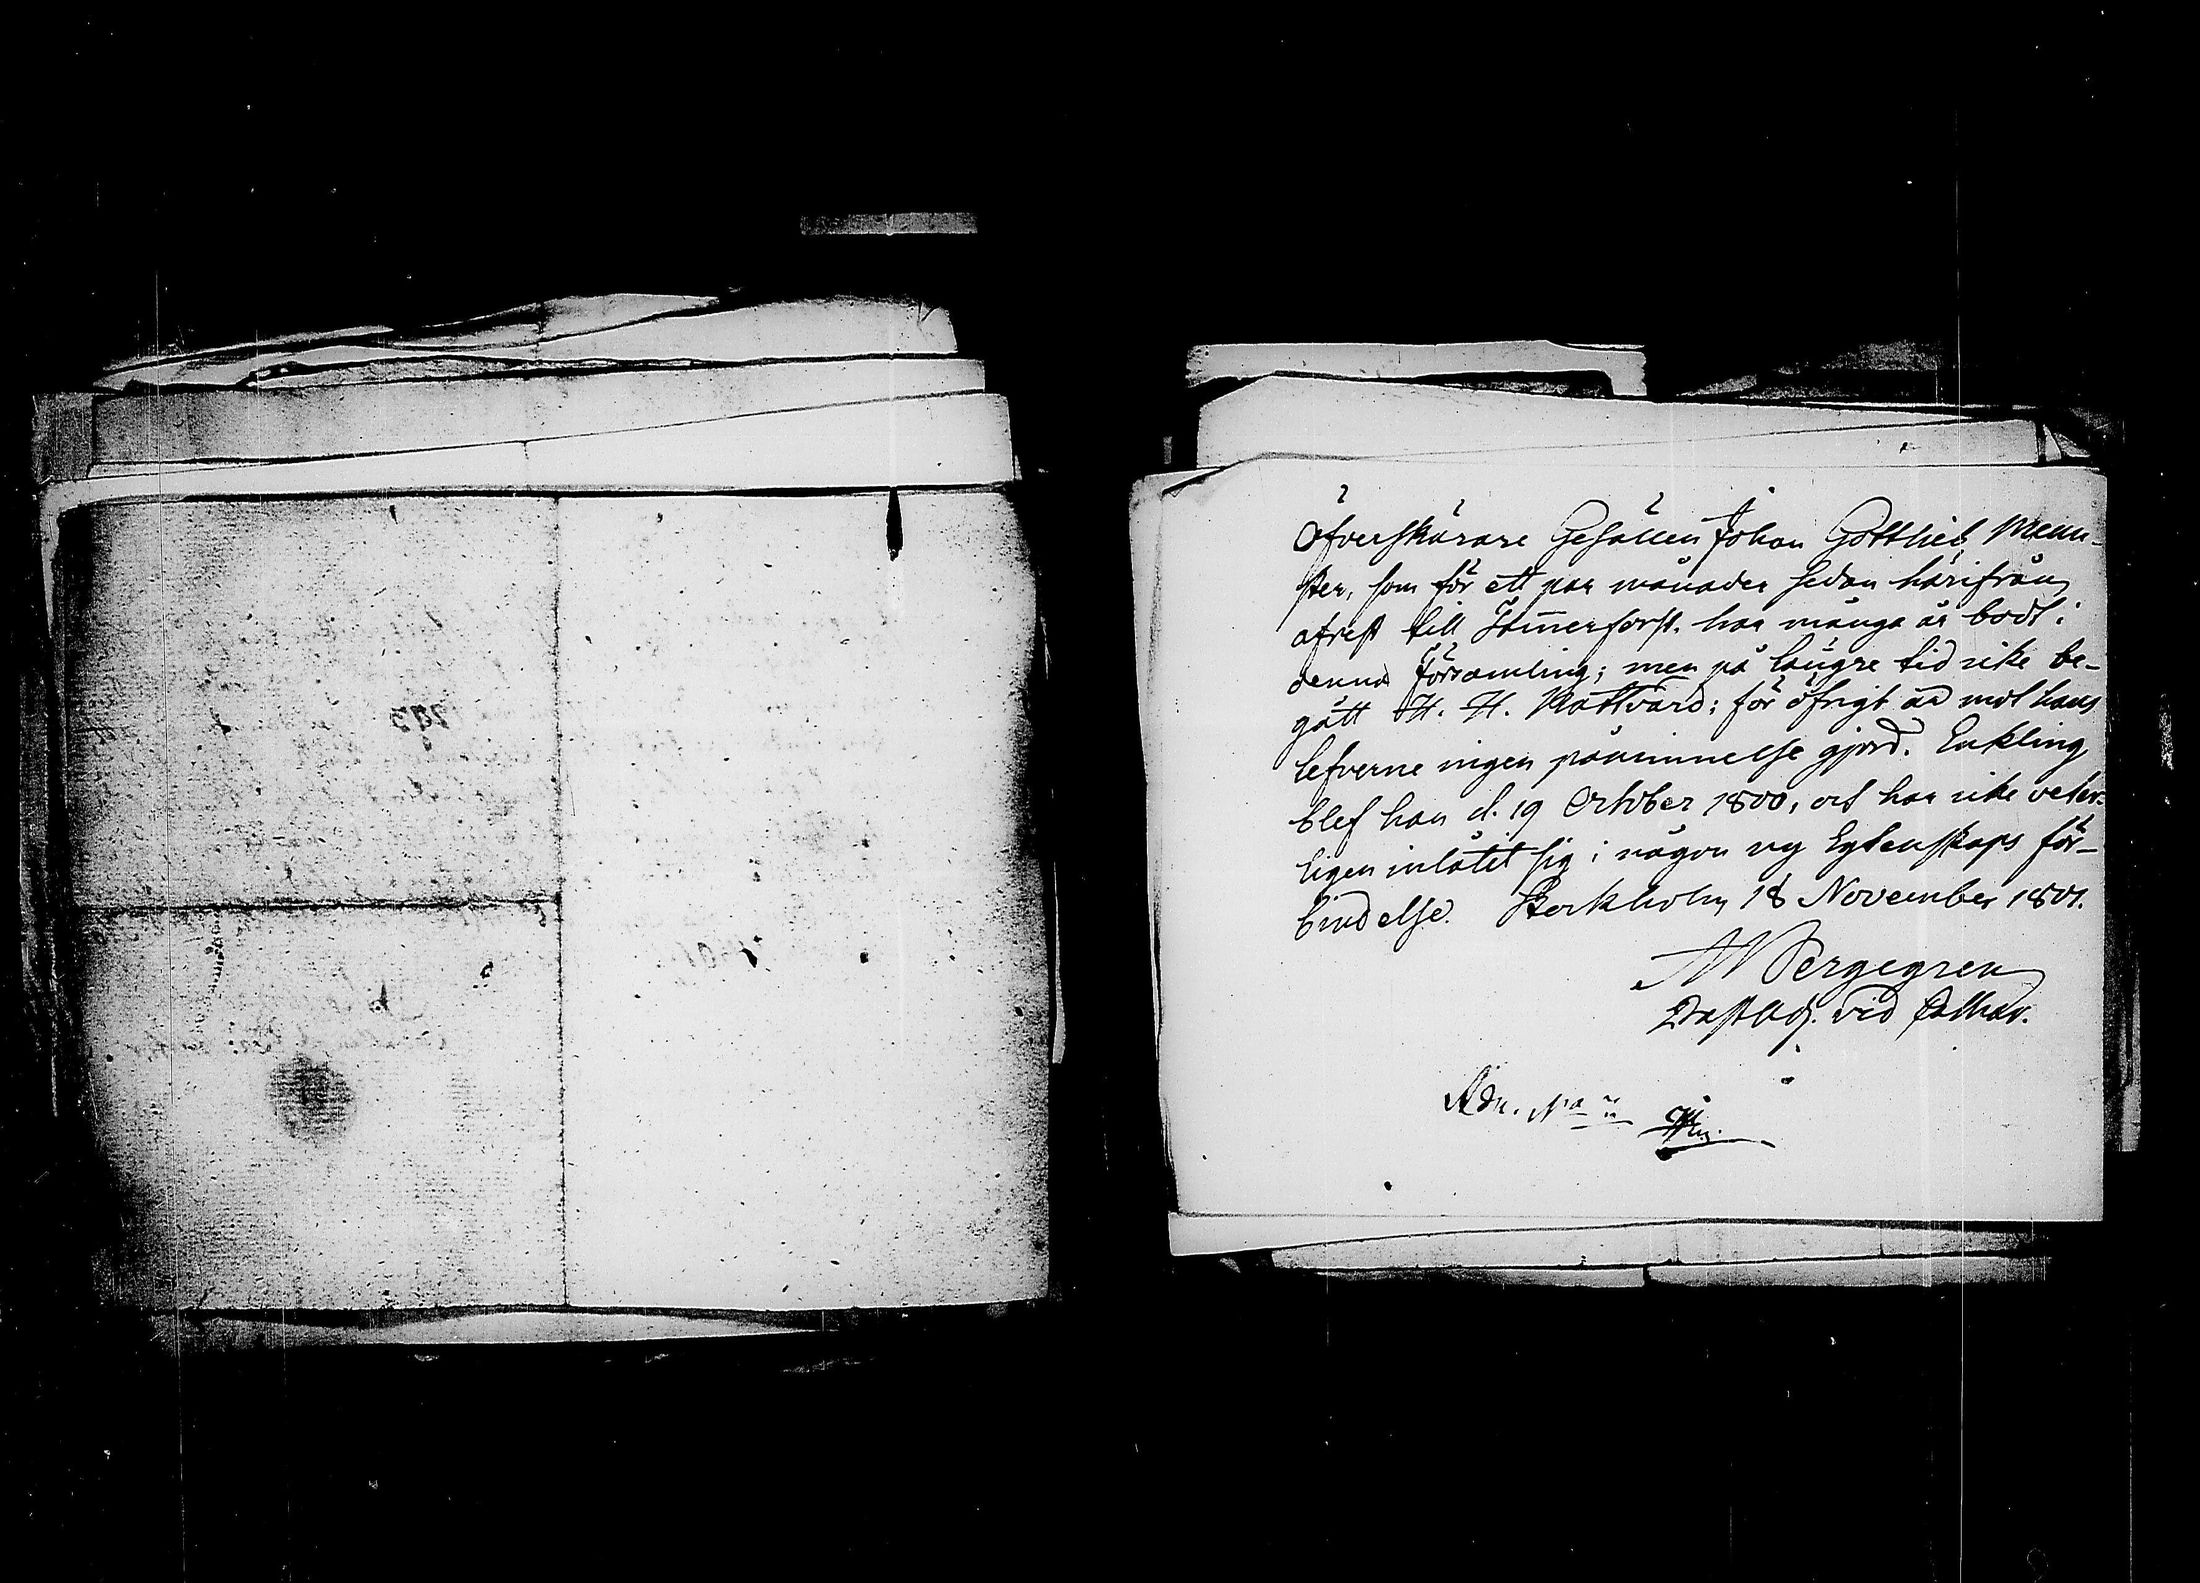 Öfverskärare Gesällen Johan Gottlieb Mun-
ster, som för ett par månader sedan härifrån
afrest till Hammerforst, har många år bodt i
denna Församling; men på längre tid icke be-
gått H. H. Nattvard; för öfrigt är mot hans
lefverne ingen påminnelse gjord. Enkling
blef han d. 19 October 1800, och har icke veter-
ligen inlåtit sig i någon ny Egtenskaps för-
bindelse. Stockholm 18 November 1801.
Bergegren
Past Adj. vid Cathar.